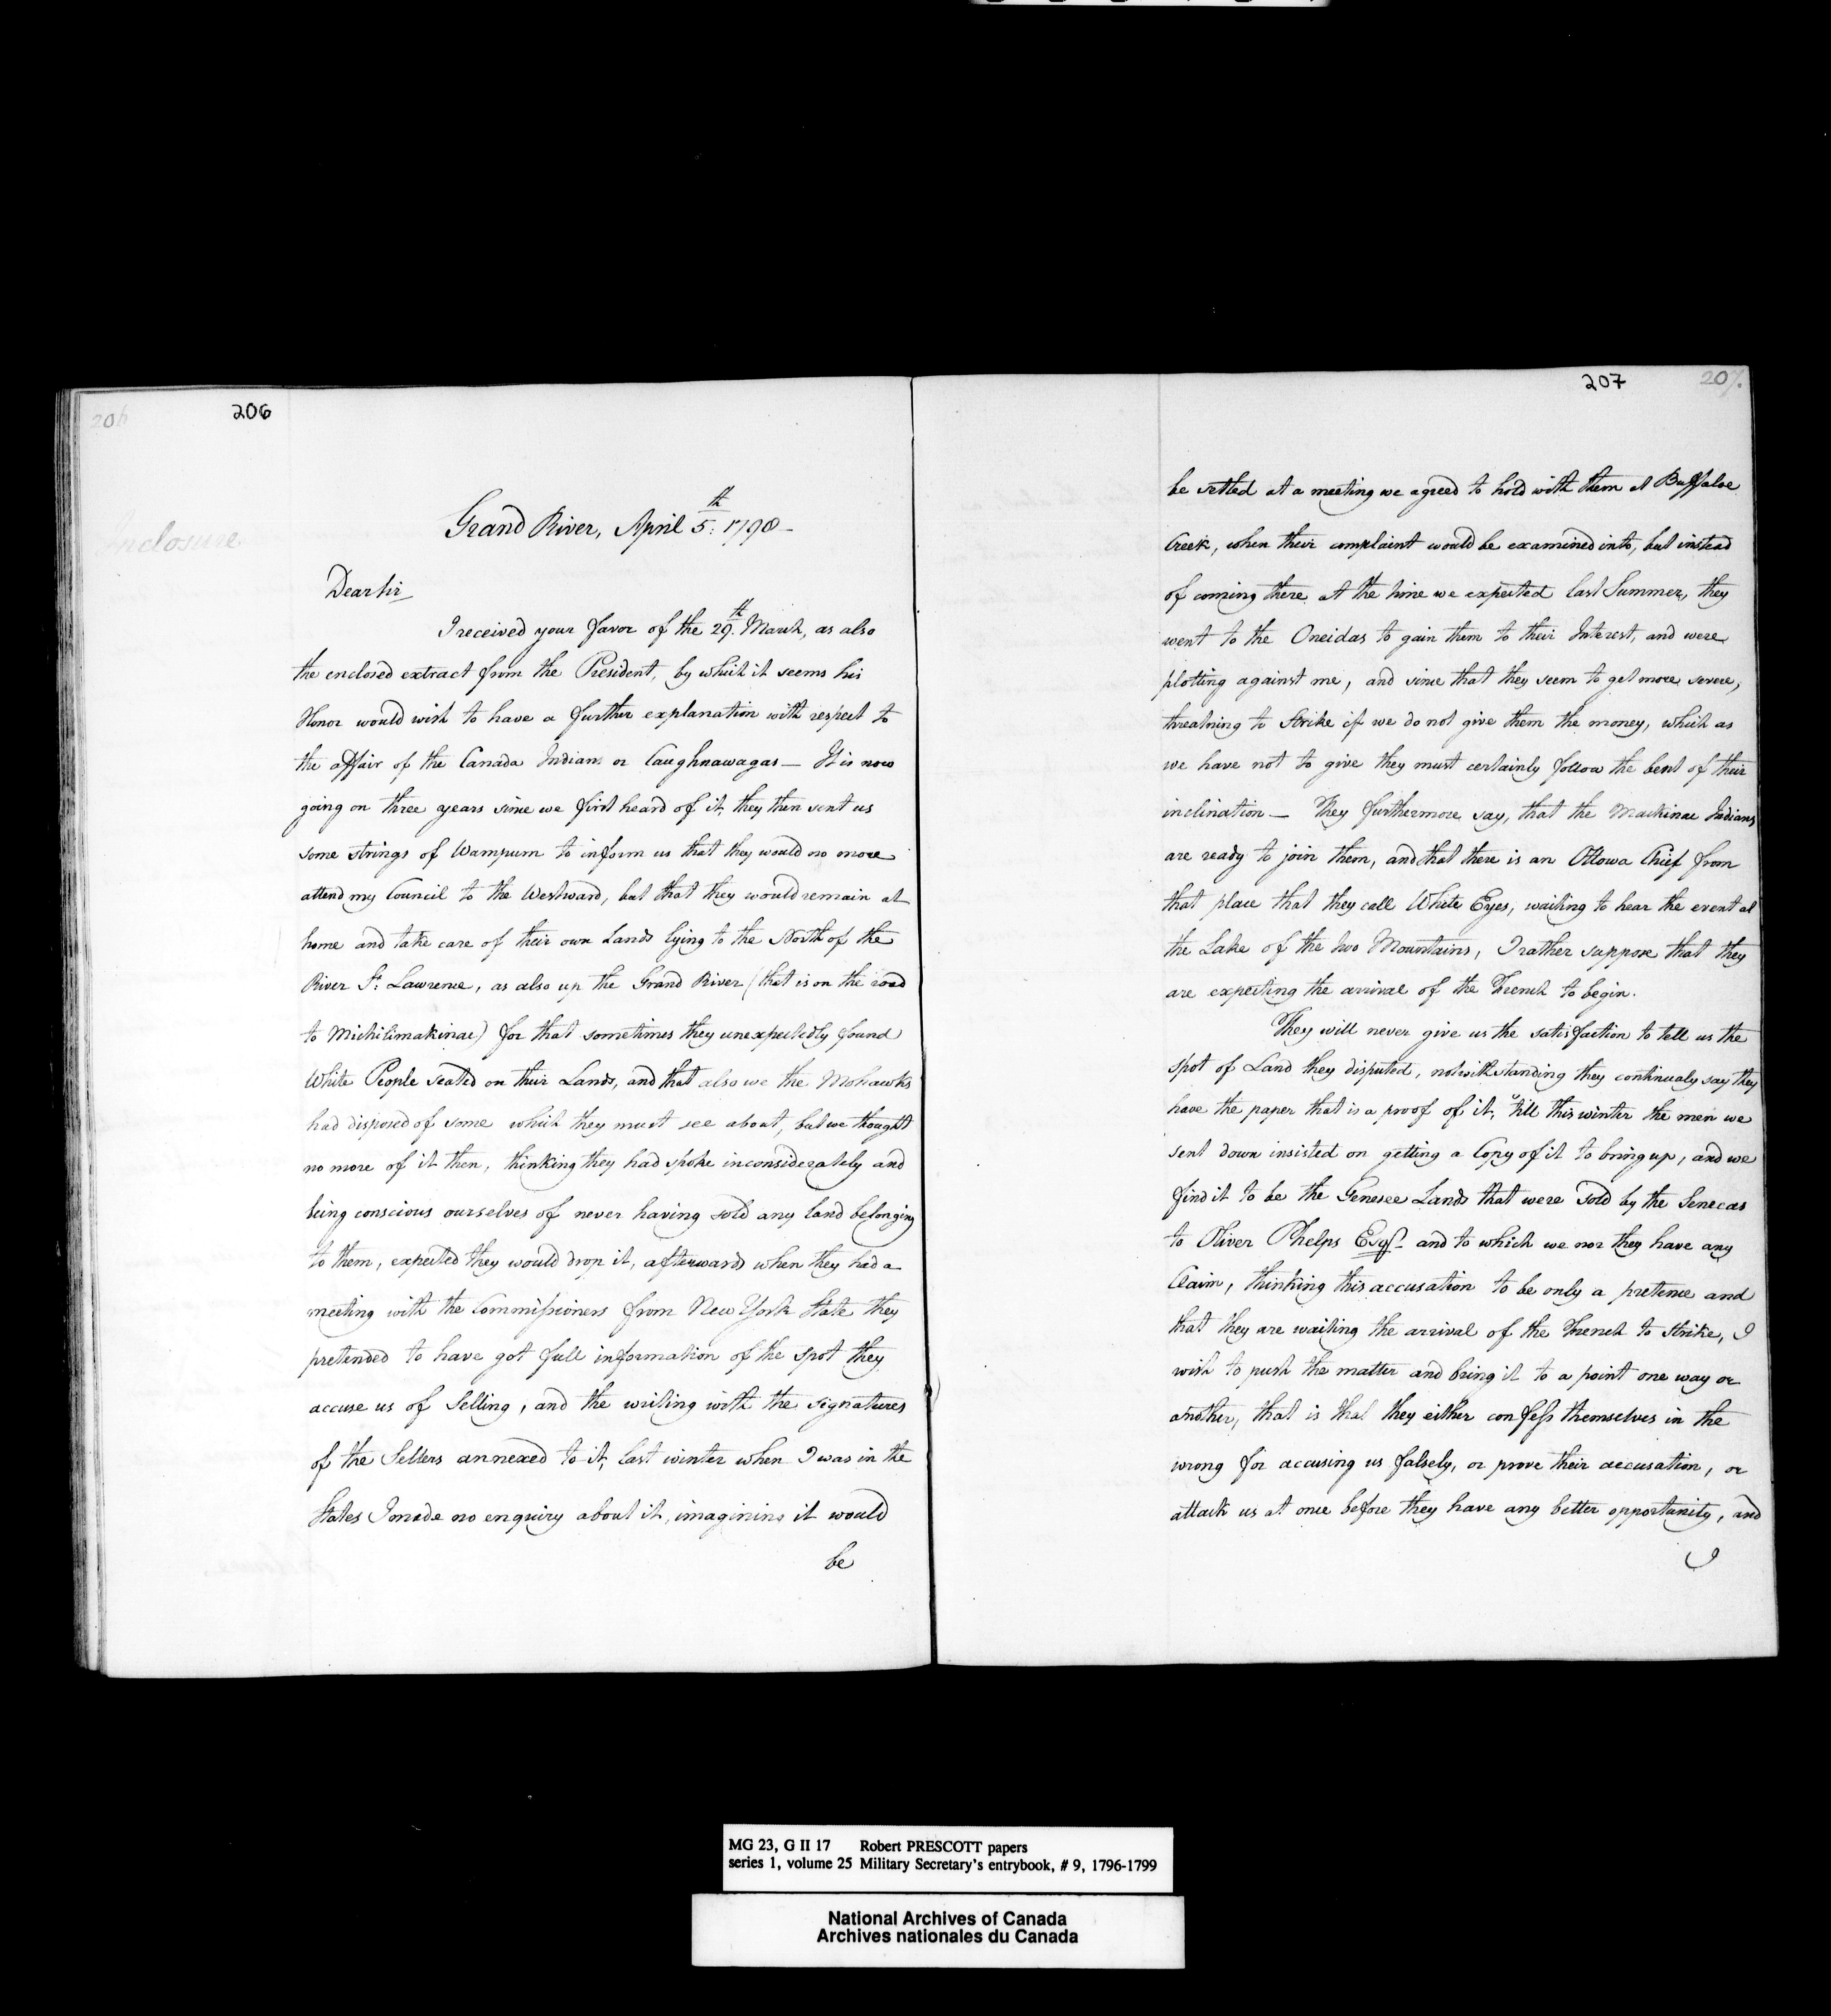 206
206
Enclosure
Grand River, April 5:th 1798 —
Dear Sir
I received your favor of the 29.th March, as also
the enclosed extract from the President, by which it seems his
Honor would wish to have a further explanation with respect to
the affair of the Canada Indians or Caughnawagas — It is now
going on three years since we first heard of it, they then sent us
some strings of Wampum to inform us that they would no more
attend my Council to the Westward, but that they would remain at
home and take care of their own Lands lying to the North of the
River St. Lawrence, as also up the Grand River (that is on the road
to Michilimakinac) for that sometimes they unexpectedly found
White People seated on their Lands, and that also we the Mohawks
had disposed of some which they must see about, but we thought
no more of it then, thinking they had spoke inconsiderately and
being conscious ourselves of never having sold any land belonging
to them, expected they would drop it, afterwards when they had a
meeting with the Commissioners from New York State they
pretended to have got full information of the spot they
accuse us of Selling, and the writing with the signatures
of the Sellers annexed to it, last winter when I was in the
States I made no enquiry about it, imagining it would
be
207
207.
be settled at a meeting we agreed to hold with them at Buffaloe
Creek, when their complaint would be examined into, but instead
of coming there at the time we expected last Summer, they
went to the Oneidas to gain them to their Interest, and were
plotting against me, and since that they seem to get more severe,
threatning to Strike if we do not give them the money, which as
we have not to give they must certainly follow the bent of their
inclination — They furthermore say, that the Mackinac Indians
are ready to join them, and that there is an Ottowa Chief from
that place that they call White Eyes, waiting to hear the event at
the Lake of the two Mountains, I rather suppose that they
are expecting the arrival of the French to begin.
They will never give us the satisfaction to tell us the
spot of Land they disputed, notwithstanding they continualy say they
have the paper that is a proof of it, 'till this winter the men we
sent down insisted on getting a Copy of it to bring up, and we
find it to be the Genesee Lands that were Sold by the Senecas
to Oliver Phelps Esqr. and to which we nor they have any
Claim, thinking this accusation to be only a pretence and
that they are waiting the arrival of the French to strike, I
wish to push the matter and bring it to a point one way or
another, that is that they either confess themselves in the
wrong for accusing us falsely, or prove their accusation, or
attack us at once before they have any better opportunity, and
I
MG 23, G II 17 Robert PRESCOTT papers
series 1, volume 25 Military Secretary's entrybook, # 9, 1796-1799
National Archives of Canada
Archives nationales du Canada